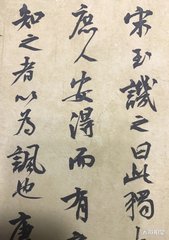 宋玉譏之曰此獨
庶人安得而有
知之者以為諷也唐